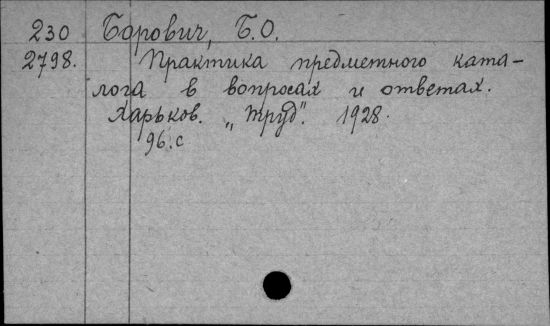 230 Борович, Б.О.
2798. Практика предметного ката-
лога в вопросах и ответах.
Харьков. „Труд". 1928.
96.с